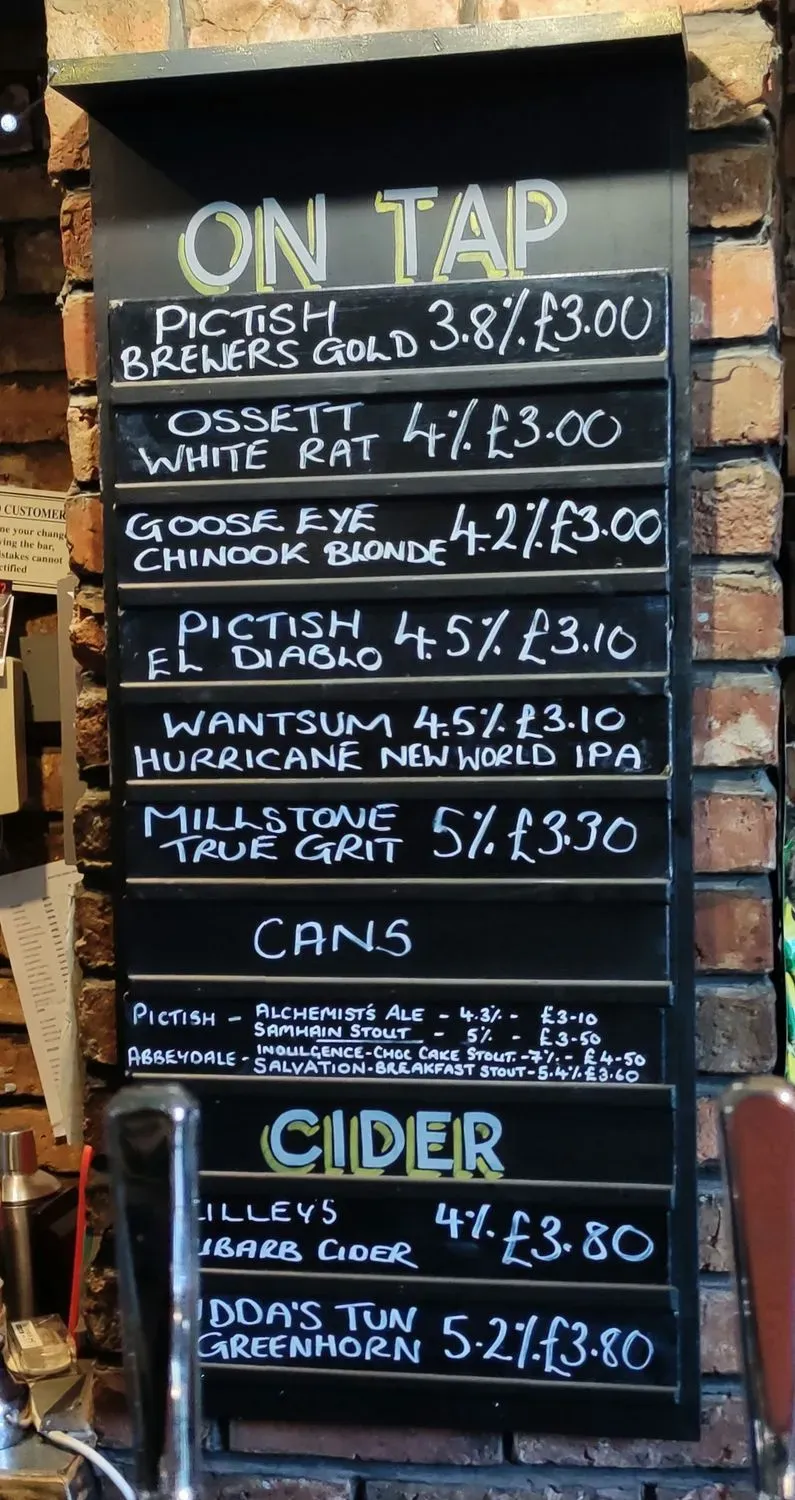 ON TAP
PICTISH 3.8% £3.00
BREWERS GOLD
OSSETT 4% £3.00
WHITE RAT
GOOSE EYE 4.2% £3.00
CHINOOK BLONDE
PICTISH 4.5% £3.10
EL DIABLO
WANTSUM 4.5% £3.10
HURRICANE NEW WORLD IPA
MILLSTONE 5% £3.30
TRUE GRIT
CANS
PICTISH - ALCHEMIST'S ALE - 4.3% - £3-10
SAMHAIN STOUT - 5% - £3-50
ABBEYDALE - INDULGENCE-CHOC CAKE STOUT.-7%.- £4-50
SALVATION-BREAKFAST STOUT-5.4% £3.60
CIDER
ILLEYS 4% £3.80
UBARB CIDER
IDDA'S TUN 5.2% £3.80
GREENHORN
CUSTOMER
ne your change
ving the bar,
istakes cannot
ctified